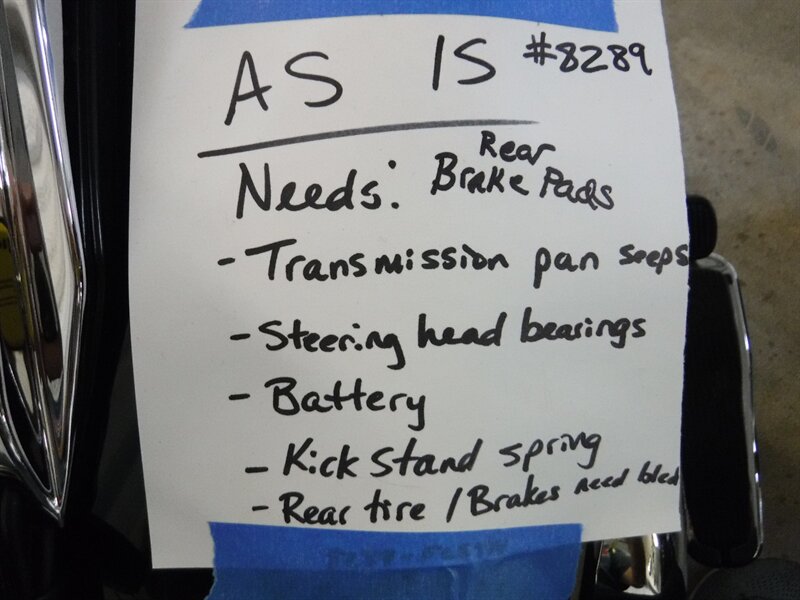 AS IS #8289
Needs: Rear Brake Pads
- Transmission pan seeps
- Steering head bearings
- Battery
- Kick Stand spring
- Rear tire / Brakes need bled